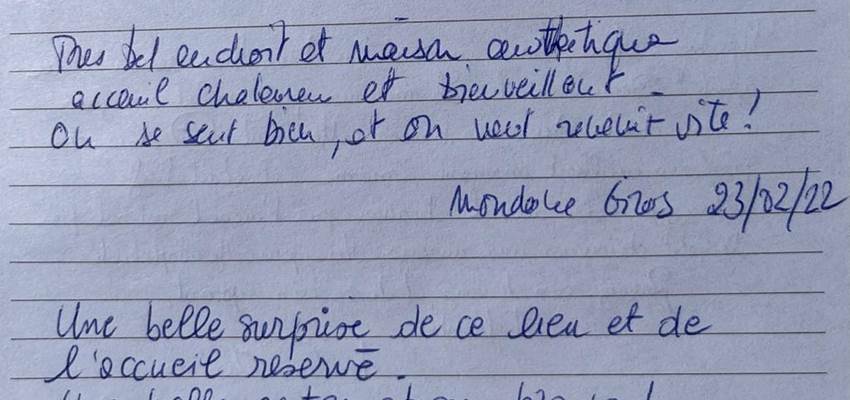 Tres bel endroit et maison authentique
acceuil chaleureu et bienveillant
On se sent bien, et on veut revenir vite!
23/02/22
Une belle surprise de ce lieu et de
l'accueil réservé.